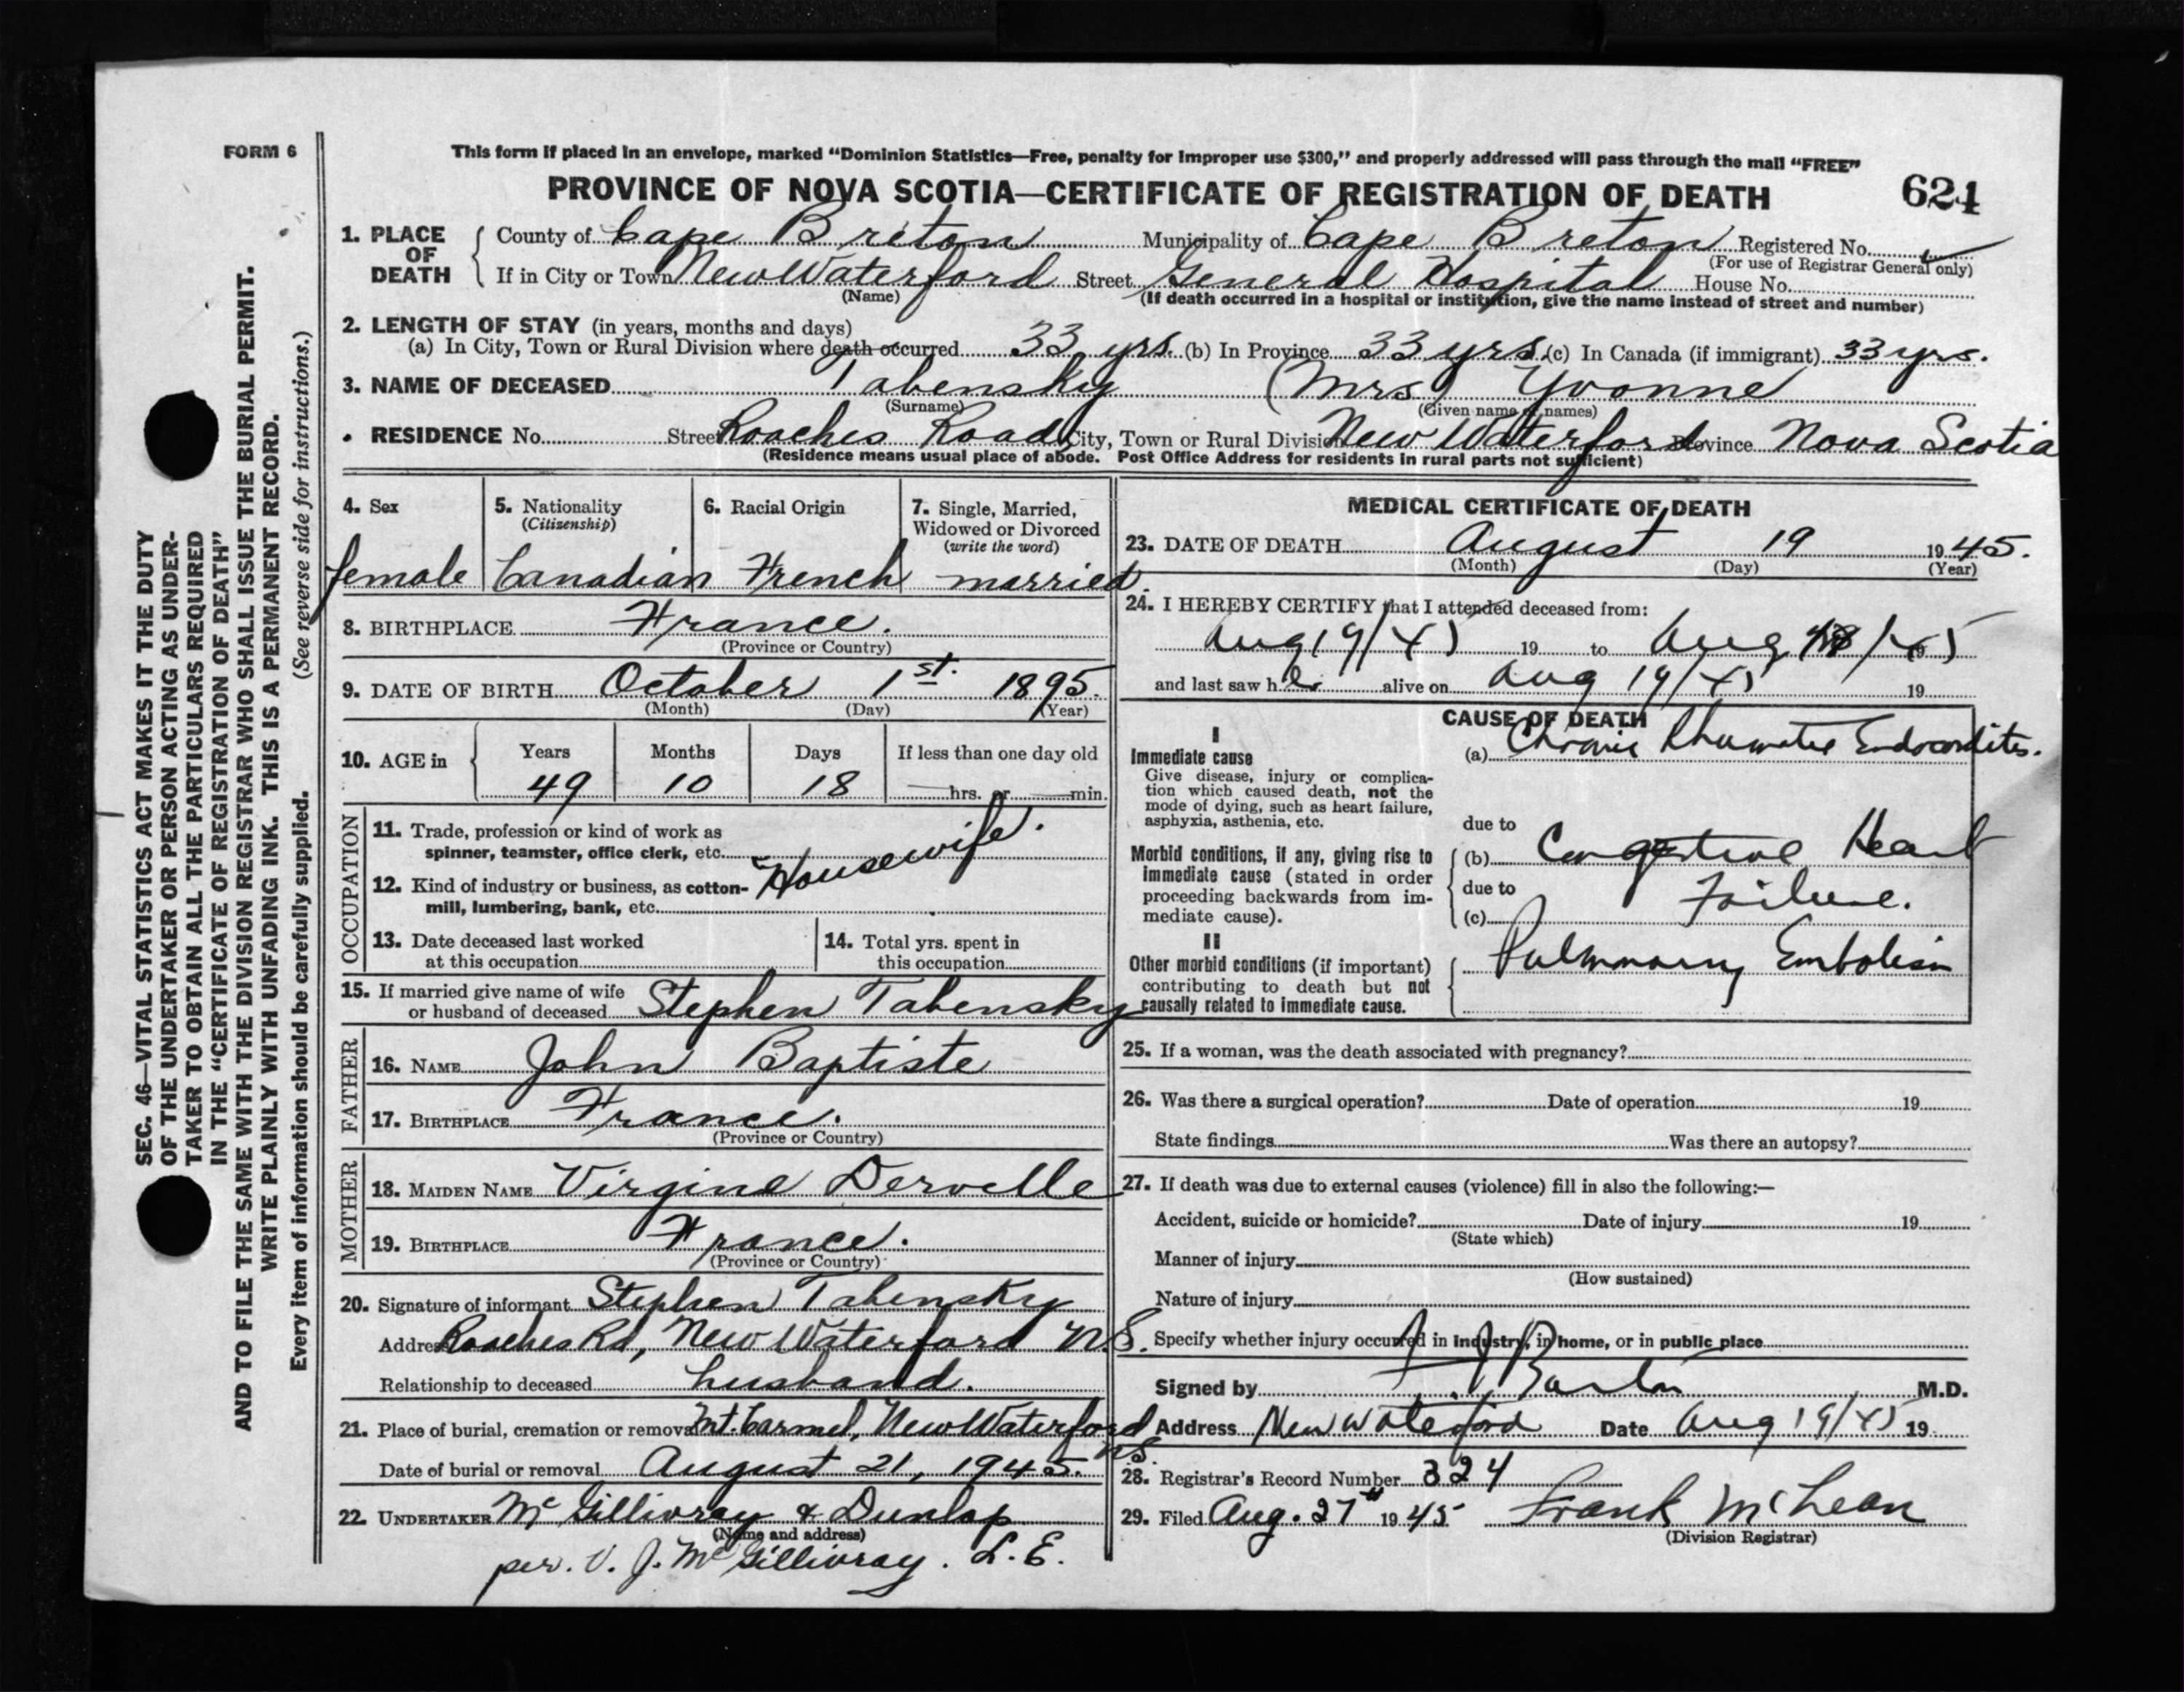 FORM 6
This form if placed in an envelope, marked “Dominion Statistics—Free, penalty for improper use $300,” and properly addressed will pass through the mail “FREE”
PROVINCE OF NOVA SCOTIA—CERTIFICATE OF REGISTRATION OF DEATH 624
1. PLACE OF DEATH County of Cape Breton Municipality of Cape Breton Registered No.
(For use of Registrar General only)
If in City or Town New Waterford Street General Hospital House No.
(Name) (If death occurred in a hospital or institution, give the name instead of street and number)
2. LENGTH OF STAY (in years, months and days)
(a) In City, Town or Rural Division where death occurred 33 yrs. (b) In Province 33 yrs. (c) In Canada (if immigrant) 33 yrs.
3. NAME OF DECEASED Tabensky (Mrs) Yvonne
(Surname) (Given name or names)
RESIDENCE No. Street Roaches Road City, Town or Rural Division New Waterford Province Nova Scotia
(Residence means usual place of abode. Post Office Address for residents in rural parts not sufficient)
4. Sex
female
5. Nationality
(Citizenship)
Canadian
6. Racial Origin
French
7. Single, Married,
Widowed or Divorced
(write the word)
married
8. BIRTHPLACE France.
(Province or Country)
9. DATE OF BIRTH October 1st. 1895.
(Month) (Day) (Year)
10. AGE in Years Months Days If less than one day old
49 10 18 hrs. or min.
OCCUPATION
11. Trade, profession or kind of work as
spinner, teamster, office clerk, etc.
Housewife.
12. Kind of industry or business, as cotton-
mill, lumbering, bank, etc.
13. Date deceased last worked
at this occupation
14. Total yrs. spent in
this occupation
15. If married give name of wife
or husband of deceased Stephen Tabensky
FATHER
16. NAME John Baptiste
17. BIRTHPLACE France.
(Province or Country)
MOTHER
18. MAIDEN NAME Virgine Dervelle
19. BIRTHPLACE France.
(Province or Country)
20. Signature of informant Stephen Tabensky
Address Roaches Rd, New Waterford N.S.
Relationship to deceased husband.
21. Place of burial, cremation or removal Mt. Carmel, New Waterford N.S.
Date of burial or removal August 21, 1945.
22. UNDERTAKER McGillivray & Dunlap
(Name and address)
per. V. J. McGillivray. L.E.
MEDICAL CERTIFICATE OF DEATH
23. DATE OF DEATH August 19 1945.
(Month) (Day) (Year)
24. I HEREBY CERTIFY that I attended deceased from:
Aug 19/45 19 to Aug /45 19
and last saw her alive on Aug 19/45 19
CAUSE OF DEATH
I
Immediate cause
Give disease, injury or complica-
tion which caused death, not the
mode of dying, such as heart failure,
asphyxia, asthenia, etc.
(a) Chronic Rheumatic Endocarditis.
due to
Morbid conditions, if any, giving rise to
immediate cause (stated in order
proceeding backwards from im-
mediate cause).
(b) Congestive Heart
due to Failure.
(c)
II
Other morbid conditions (if important)
contributing to death but not
causally related to immediate cause.
Pulmonary Embolism
25. If a woman, was the death associated with pregnancy?
26. Was there a surgical operation? Date of operation 19
State findings Was there an autopsy?
27. If death was due to external causes (violence) fill in also the following:—
Accident, suicide or homicide? Date of injury 19
(State which)
Manner of injury
(How sustained)
Nature of injury
Specify whether injury occurred in industry, in home, or in public place
Signed by M.D.
Address New Waterford Date Aug 19/45 19
28. Registrar's Record Number 324
29. Filed Aug. 27th 1945 Frank McLean
(Division Registrar)
SEC. 46—VITAL STATISTICS ACT MAKES IT THE DUTY
OF THE UNDERTAKER OR PERSON ACTING AS UNDER-
TAKER TO OBTAIN ALL THE PARTICULARS REQUIRED
IN THE “CERTIFICATE OF REGISTRATION OF DEATH”
AND TO FILE THE SAME WITH THE DIVISION REGISTRAR WHO SHALL ISSUE THE BURIAL PERMIT.
WRITE PLAINLY WITH UNFADING INK. THIS IS A PERMANENT RECORD.
Every item of information should be carefully supplied. (See reverse side for instructions.)